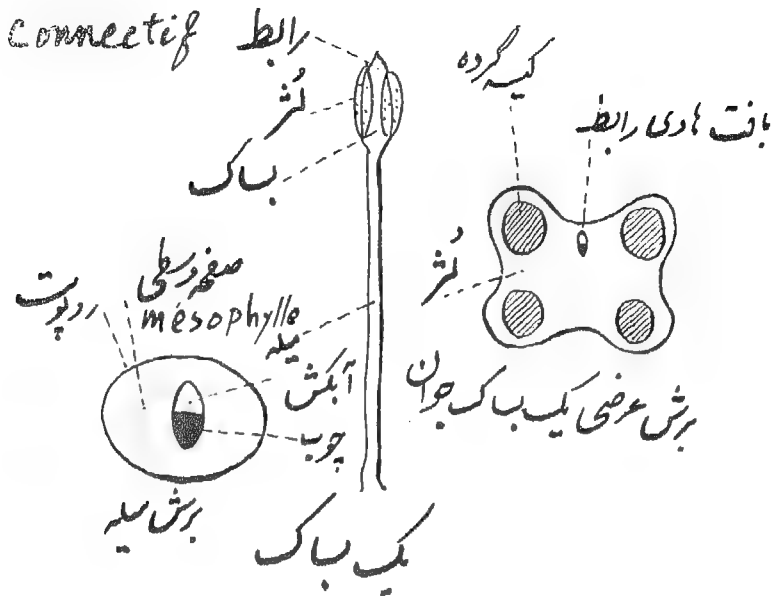 connectif رابط
لُثر
بساک
کیسه گرده
بافت هادی رابط
لُثر
برش عرضی یک بساک جوان
صفحه وسطی
mésophylle
روپوست
میله
آبکش
چوب
برش میله
یک بساک